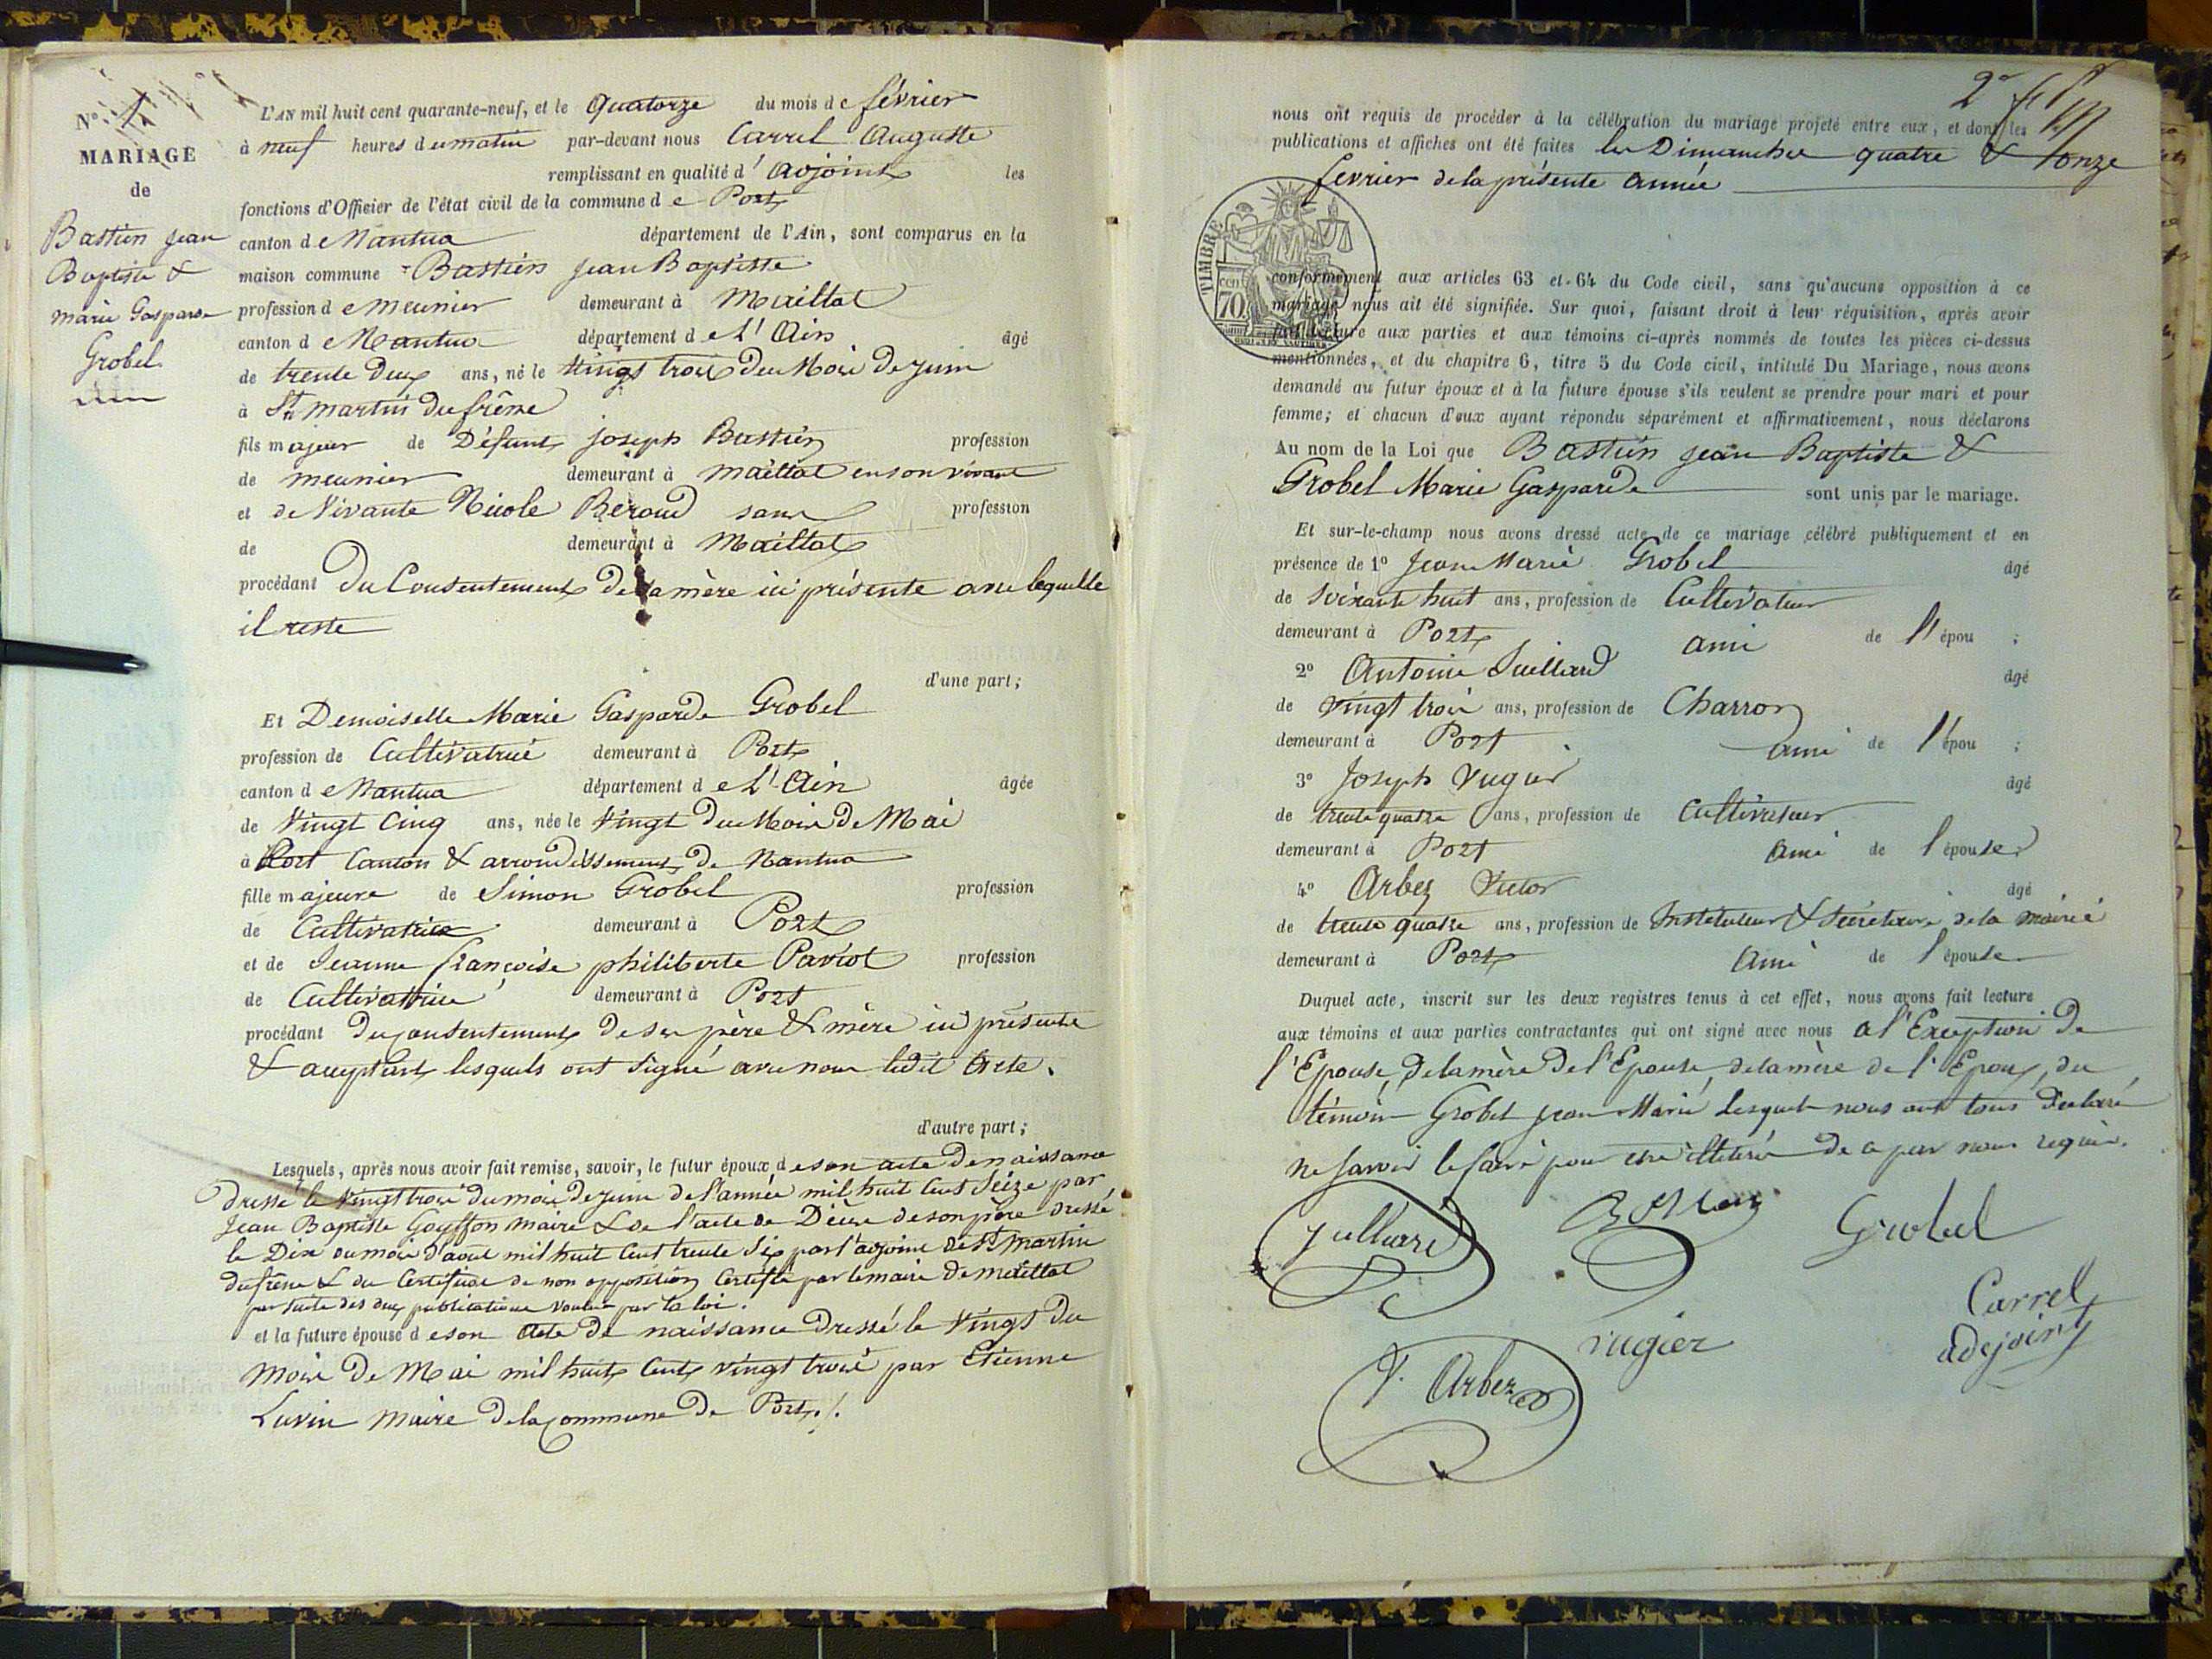 N° 1
MARIAGE
de
Bastien Jean
Baptiste &
Marie Gasparde
Grobel
L'AN mil huit cent quarante-neuf, et le Quatorze du mois de février
à neuf heures du matin par-devant nous Carrel Auguste
remplissant en qualité d'Adjoint les
fonctions d'Officier de l'état civil de la commune de Port
canton de Nantua département de l'Ain, sont comparus en la
maison commune Bastien Jean Baptiste
profession de meunier demeurant à Maillat
canton de Nantua département de L'Ain âgé
de trente deux ans, né le vingt trois du Mois de Juin
à St Martin du frêne
fils majeur de Défunt Joseph Bastien profession
de meunier demeurant à Maillat en son vivant
et de Vivante Nicole Beroud sans profession
de demeurant à Maillat
procédant du Consentement de sa mère ici présente avec laquelle
il reste
d'une part;
Et Demoiselle Marie Gasparde Grobel
profession de Cultivatrice demeurant à Port
canton de Nantua département de L'Ain âgée
de Vingt Cinq ans, née le Vingt du Mois de Mai
à Port Canton & arrondissement de Nantua
fille majeure de Simon Grobel profession
de Cultivatrice demeurant à Port
et de Jeanne françoise philiberte Paviot profession
de Cultivatrice demeurant à Port
procédant du consentement de ses père & mère ici présents
& acceptant lesquels ont signé avec nous ledit Acte.
d'autre part;
Lesquels, après nous avoir fait remise, savoir, le futur époux de son acte de naissance
dressé le vingt trois du mois de juin de l'année mil huit Cent Seize par
Jean Baptiste Goyffon maire & de l'acte de Décès de son père dressé
le Dix du mois d'aout mil huit Cent trente Six par l'adjoint de St Martin
du frêne & du Certificat de non opposition Certifié par le maire de Maillat
par suite des deux publications voulues par la loi.
et la future épouse de son Acte de naissance Dressé le Vingt du
Mois de Mai mil huit Cent vingt trois par Etienne
Luvin Maire de la Commune de Port./.
2e
nous ont requis de procéder à la célébration du mariage projeté entre eux, et dont les
publications et affiches ont été faites les Dimanches quatre & onze
février de la présente année
TIMBRE
70 cent
conformément aux articles 63 et 64 du Code civil, sans qu'aucune opposition à ce
mariage nous ait été signifiée. Sur quoi, faisant droit à leur réquisition, après avoir
fait lecture aux parties et aux témoins ci-après nommés de toutes les pièces ci-dessus
mentionnées, et du chapitre 6, titre 5 du Code civil, intitulé Du Mariage, nous avons
demandé au futur époux et à la future épouse s'ils veulent se prendre pour mari et pour
femme; et chacun d'eux ayant répondu séparément et affirmativement, nous déclarons
Au nom de la Loi que Bastien Jean Baptiste &
Grobel Marie Gasparde sont unis par le mariage.
Et sur-le-champ nous avons dressé acte de ce mariage célébré publiquement et en
présence de 1° Jean Marie Grobel âgé
de soixante huit ans, profession de Cultivateur
demeurant à Port ami de l'épou ;
2° Antoine Juillard âgé
de vingt trois ans, profession de Charron
demeurant à Port ami de l'épou ;
3° Joseph Vugier âgé
de trente quatre ans, profession de Cultivateur
demeurant à Port ami de l'épouse
4° Arbez Victor âgé
de trente quatre ans, profession de Instituteur & Secrétaire de la mairie
demeurant à Port ami de l'épouse
Duquel acte, inscrit sur les deux registres tenus à cet effet, nous avons fait lecture
aux témoins et aux parties contractantes qui ont signé avec nous à l'Exception de
l'Epouse, de la mère de l'Epouse, de la mère de l'Epoux, du
témoin Grobel Jean Marie Lesquels nous ont tous déclaré
ne savoir le faire pour être illitéré de ce par nous requis.
Juillard
Grobel
Carrel
adejoint
Vugier
V. Arbez